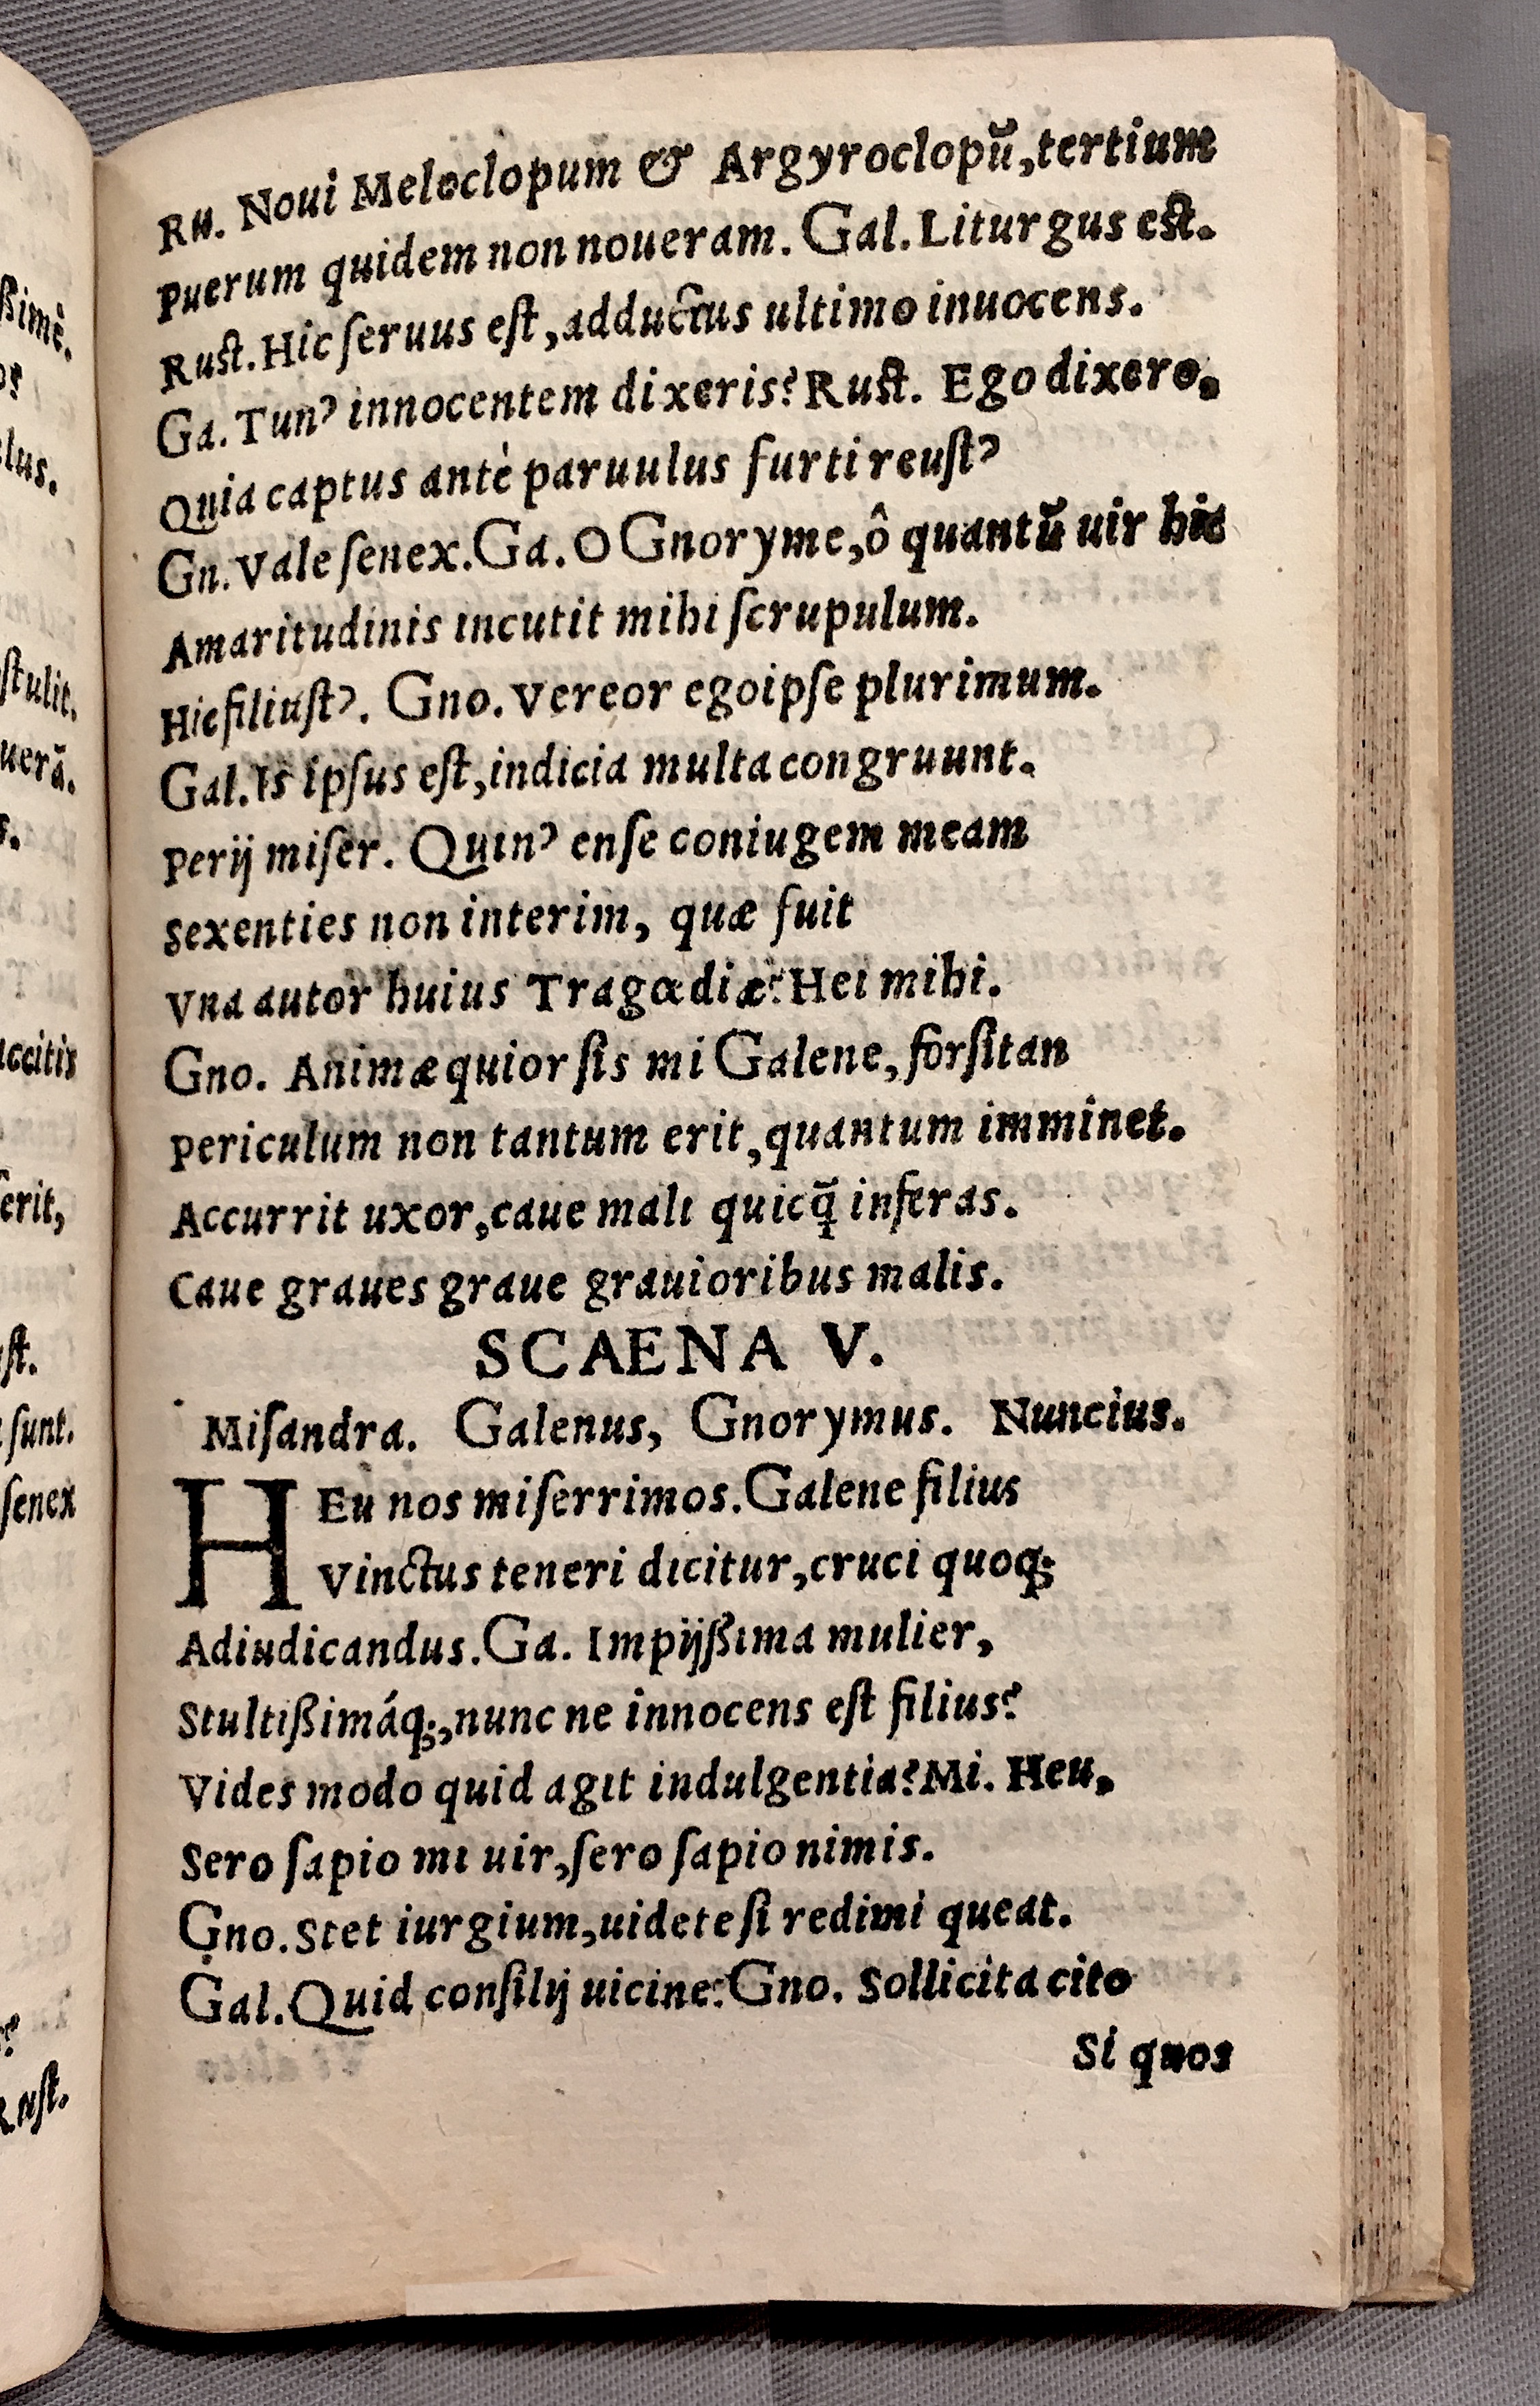 Ru. Noui Meloclopum & Argyroclopū, tertium
Puerum quidem non noueram. Gal. Liturgus est.
Rust. Hic ſeruus eſt, adductus ultimo inuocens.
Ga. Tun' innocentem dixeris? Rust. Ego dixero,
Quia captus antè paruulus furti reuſt'
Gn. Vale ſenex. Ga. O Gnoryme, ô quantū uir hic
Amaritudinis incutit mihi ſcrupulum.
Hic filiuſt'. Gno. Vereor ego ipſe plurimum.
Gal. Is ipſus eſt, indicia multa congruunt.
Perij miſer. Quin' enſe coniugem meam
Sexenties non interim, quæ fuit
Vna autor huius Tragœdiæ? Hei mihi.
Gno. Animæquior ſis mi Galene, forſitan
Periculum non tantum erit, quantum imminet.
Accurrit uxor, caue mali quicq̄ inferas.
Caue graues graue grauioribus malis.
SCAENA V.
Miſandra. Galenus, Gnorymus. Nuncius.
HEu nos miſerrimos. Galene filius
Vinctus teneri dicitur, cruci quoq;
Adiudicandus. Ga. Impijßima mulier,
Stultißimáq;, nunc ne innocens eſt filius?
Vides modo quid agit indulgentia? Mi. Heu,
Sero ſapio mi uir, ſero ſapio nimis.
Gno. Stet iurgium, uidete ſi redimi queat.
Gal. Quid conſilij uicine? Gno. Sollicita cito
Si quos